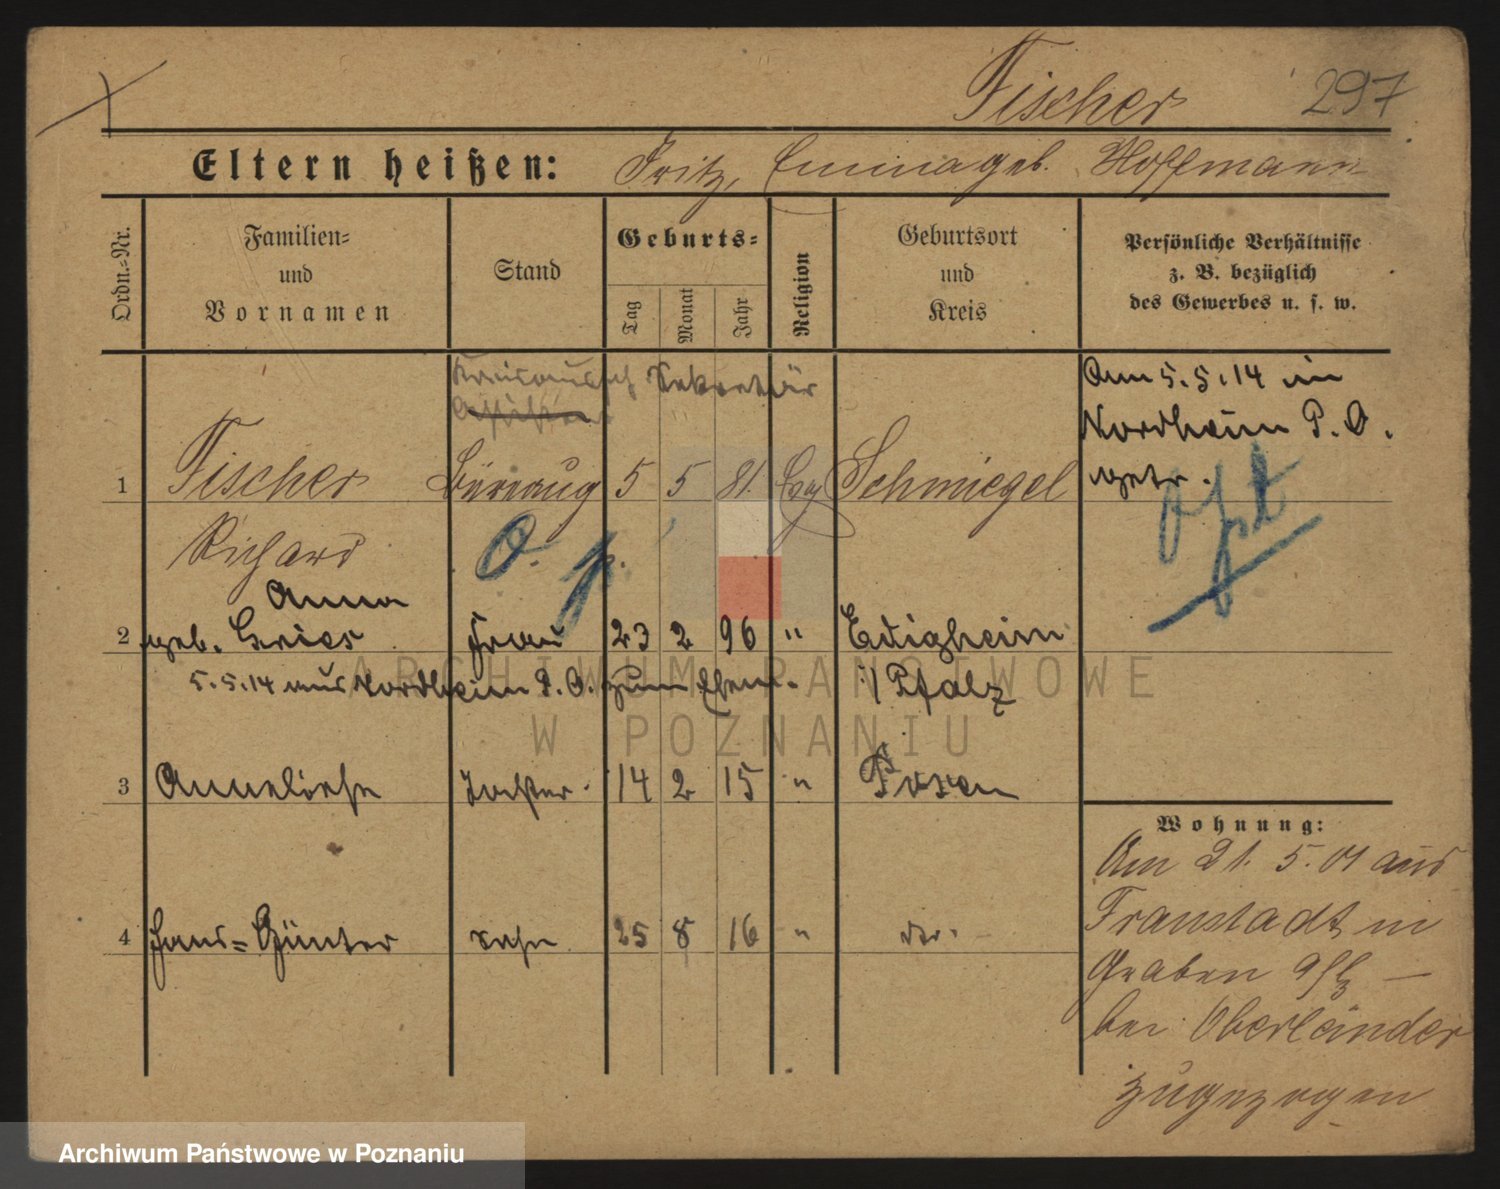 Fischer 297
Eltern heißen: Fritz, Emma geb. Hoffmann
Ordn.-Nr.
Familien-
und
Vornamen
Stand
Geburts-
Tag
Monat
Jahr
Religion
Geburtsort
und
Kreis
Persönliche Verhältnisse
z. B. bezüglich
des Gewerbes u. s. w.
Kreisaussch Sekretär
Assistent
1 Fischer Büroaug 5 5 81. Evg Schmiegel
Richard
Am 5.5.14 in
Nordheim P. O.
getr.
O. p.
Anna
2 geb. Gries Frau 23 2 96 " Edigheim
5.5.14 aus Nordheim P. O. zum Ehem. i/Pfalz
3 Anneliese Tochter 14 2 15 " Posen
4 Hans-Günter Sohn 25 8 16 " do.
Wohnung:
Am 21. 5. 01 aus
Fraustadt in
Graben 9
bei Oberländer
zugezogen
ARCHIWUM PAŃSTWOWE
W POZNANIU
Archiwum Państwowe w Poznaniu